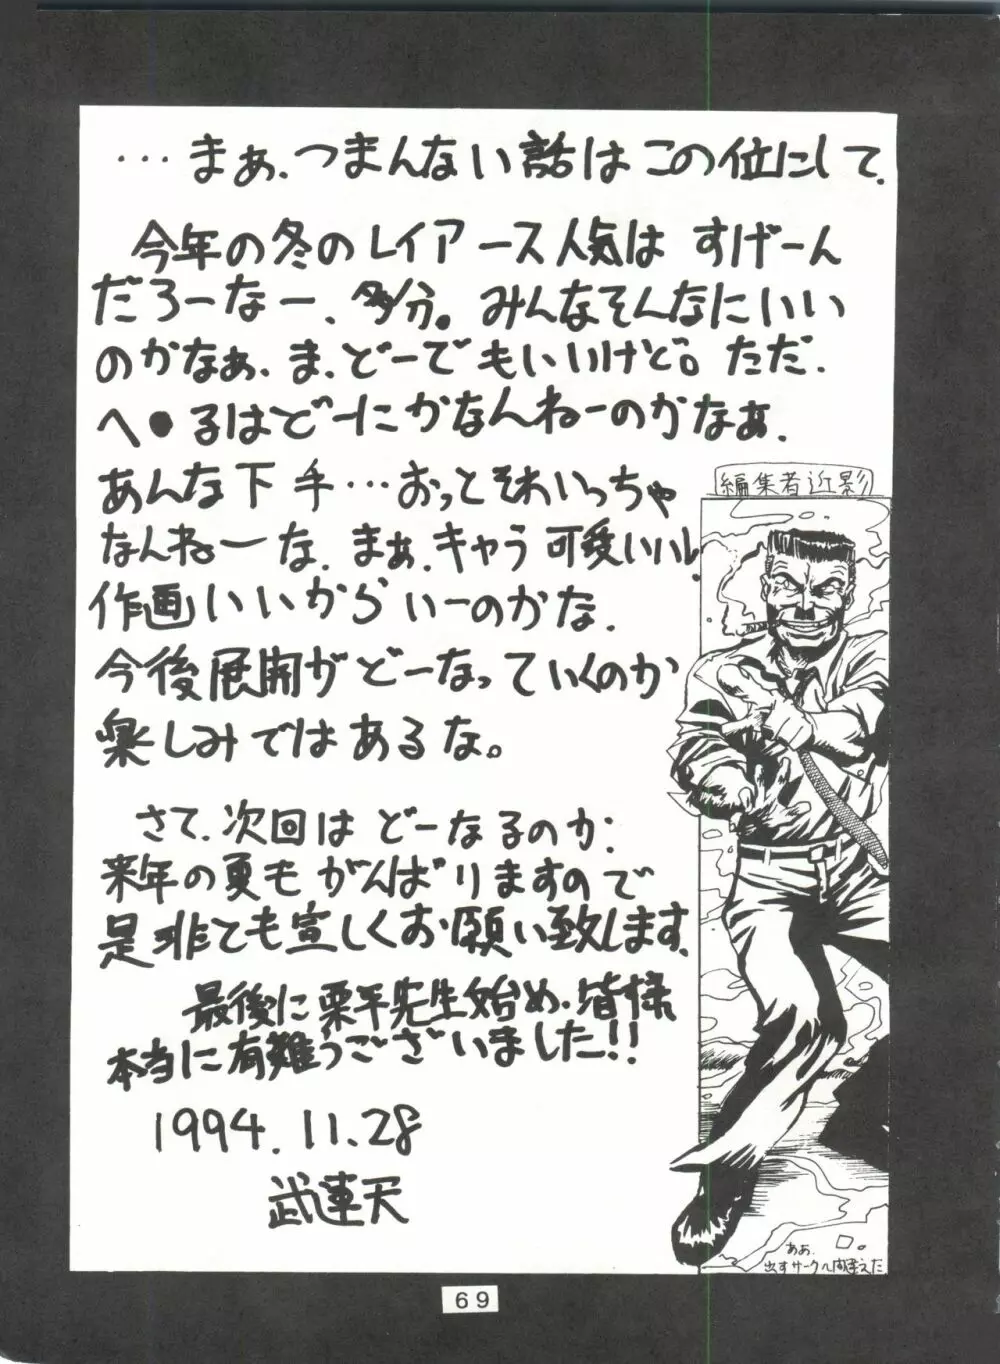 …まぁ、つまんない話はこの位にして、
今年の冬のレイアース人気はすげーん
だろーなー、多分。みんなそんなにいい
のかなぁ、ま、どーでもいいけど。ただ、
へ●るはどーにかなんねーのかなぁ、
あんな下手…おっとそれいっちゃ
なんねーな、まぁ、キャラ可愛いいし、
作画いいからいーのかな、
今後展開がどーなっていくのか
楽しみではあるな。
さて、次回はどーなるのか、
来年の夏もがんばりますので
是非とも宜しくお願い致します、
最後に栗平先生始め、皆様
本当に有難うございました!!
1994.11.28
武蓮天
編集者近影
ああ、
出すサークル間違えた
69